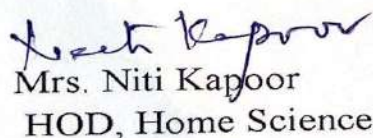 Neeti Kapoor
Mrs. Niti Kapoor
HOD, Home Science